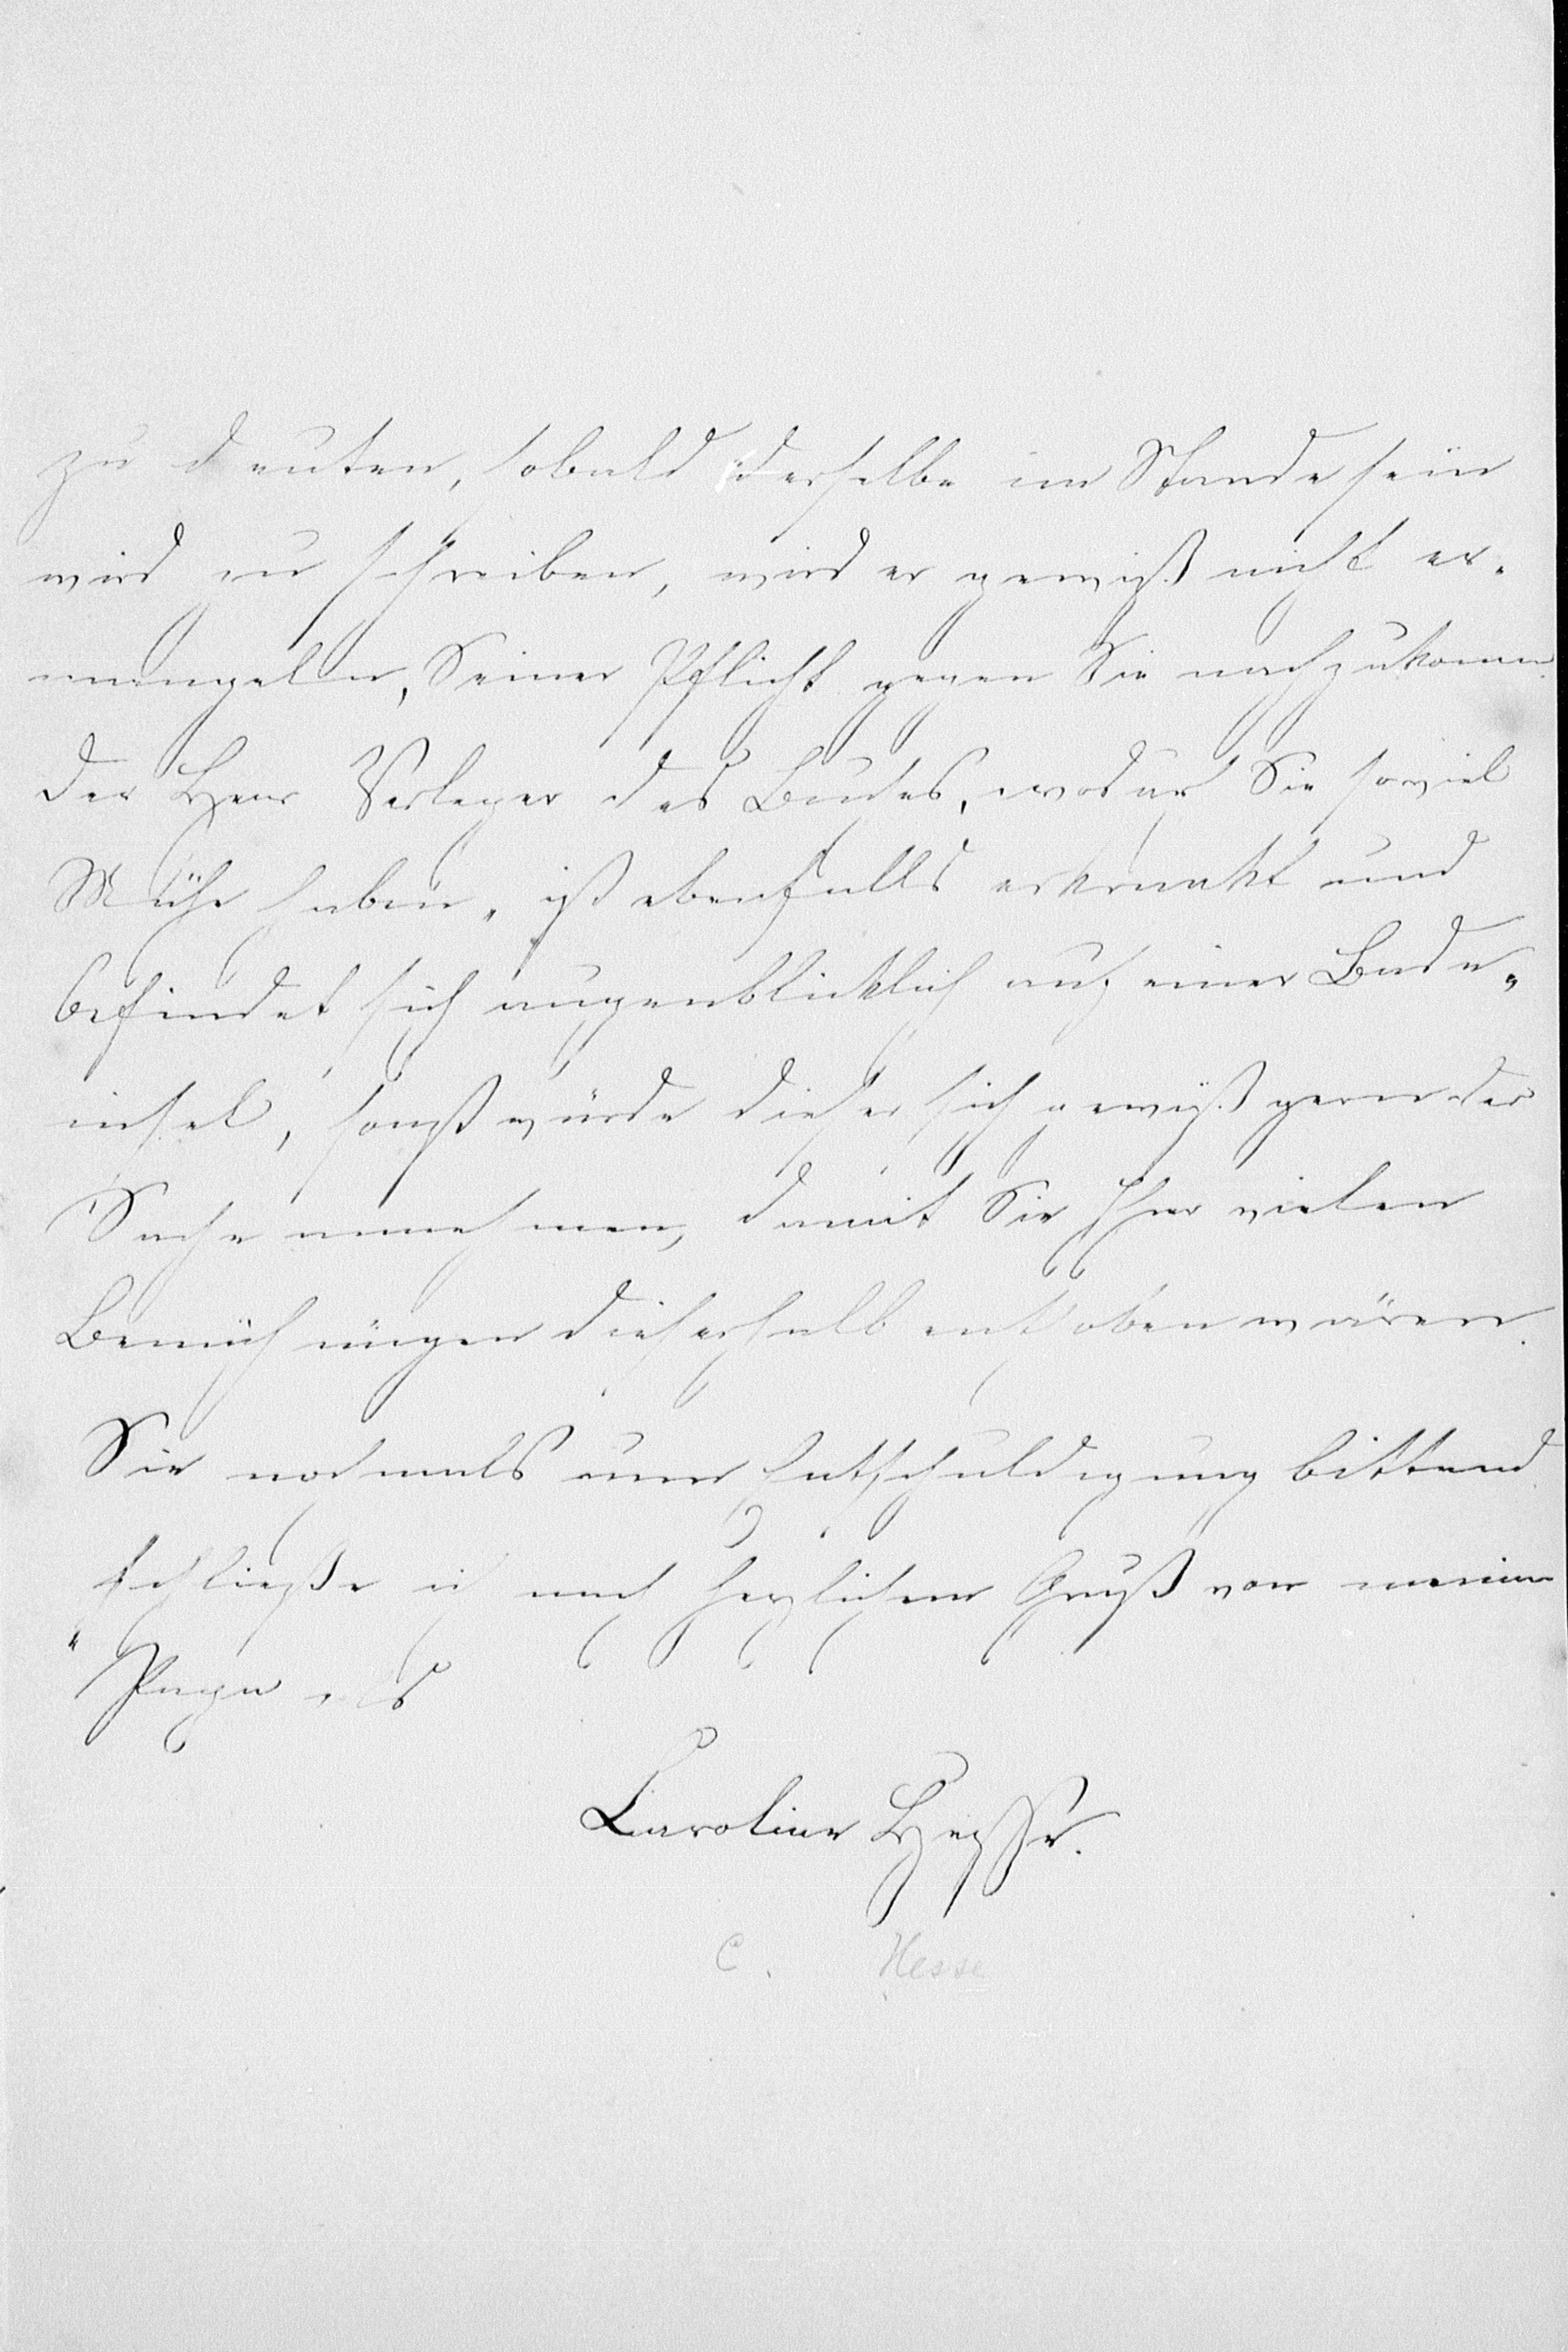 zu deuten, sobald derselbe im Stande sein
wird zu schreiben, wird er gewiß nicht er-
mangeln, Seiner Pflicht gegen Sie nachzukommen
der Herr Verleger des Buches, wodurch Sie soviel
Mühe haben, ist ebenfalls erkrankt und
befindet sich augenblicklich auf einer Bade-
insel, sonst würde dieser sich gewiß gern der
Sache annehmen, damit Sie Ihrer vielen
Bemühungen dieserhalb enthoben wären.
Sie nochmals um Entschuldigung bittend
schließe ich nach herzlichem Gruß von meinem
Papa als
Caroline Hesse.
C. Hesse